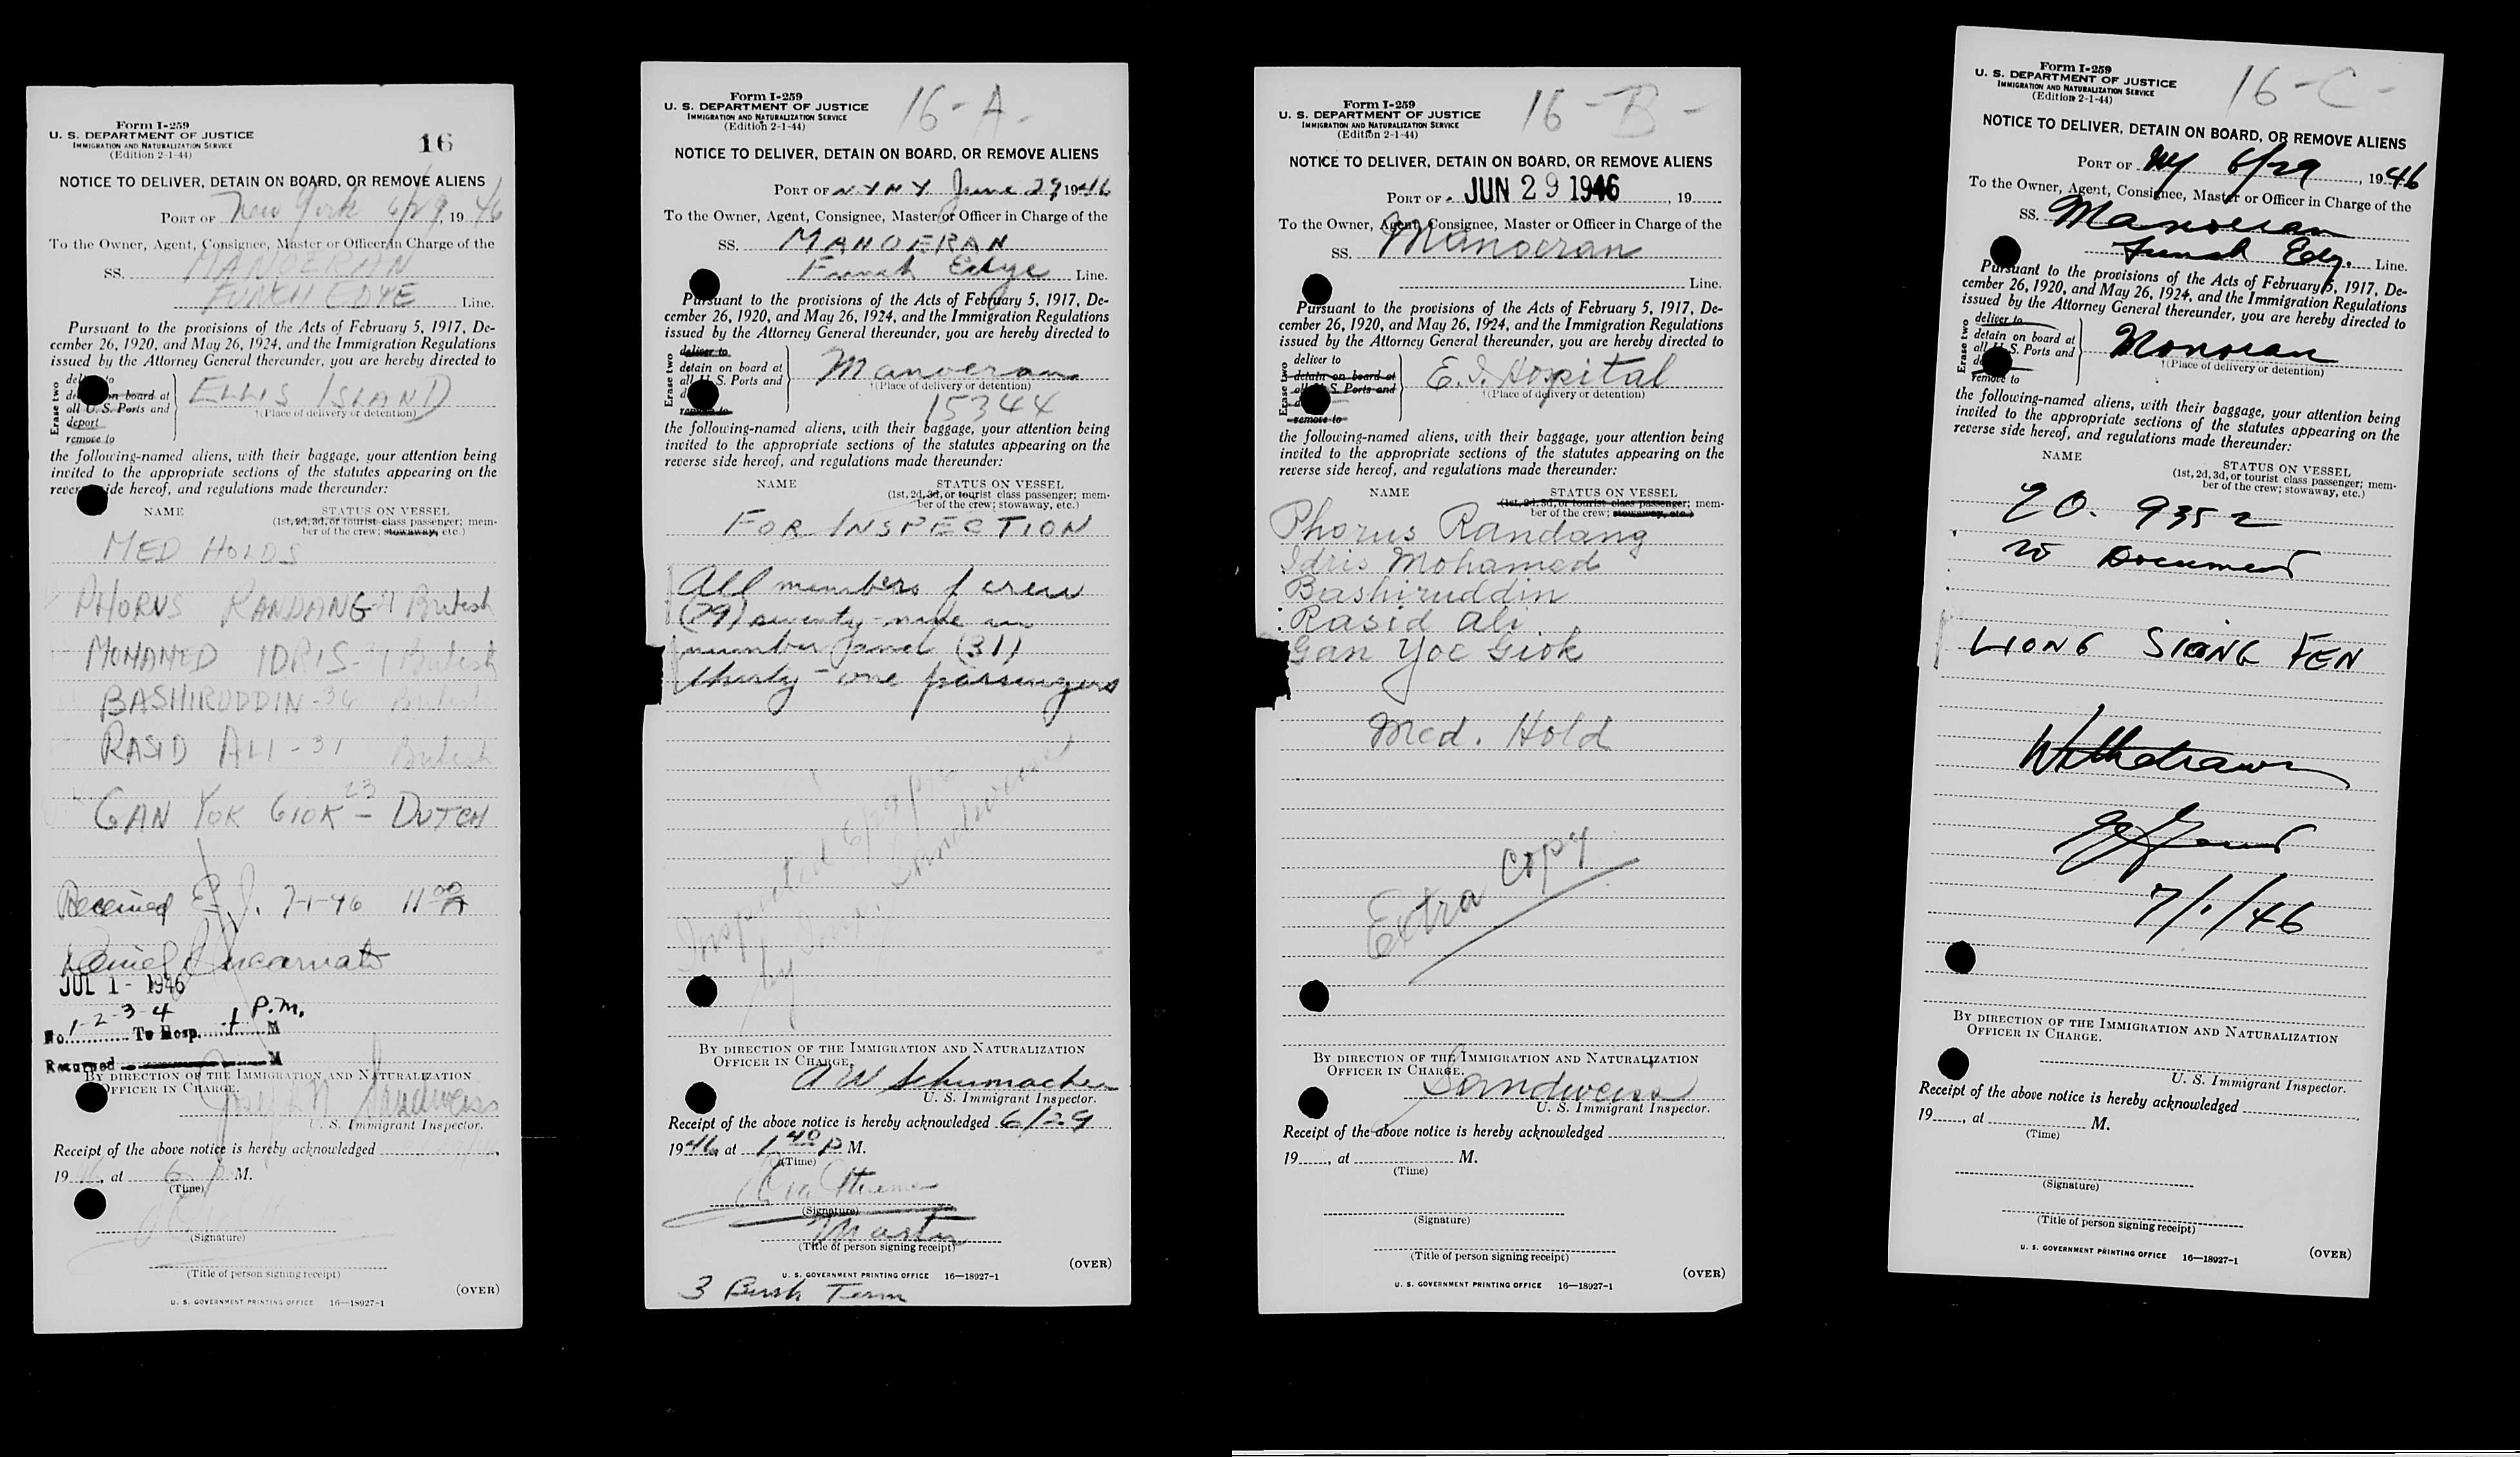 Form I-259
U. S. DEPARTMENT OF JUSTICE
IMMIGRATION AND NATURALIZATION SERVICE
(Edition 2-1-44)
16
NOTICE TO DELIVER, DETAIN ON BOARD, OR REMOVE ALIENS
PORT OF New York 6/29, 1946
To the Owner, Agent, Consignee, Master or Officer in Charge of the
SS. MANOERAN
FUNCH EDYE Line.
Pursuant to the provisions of the Acts of February 5, 1917, De-
cember 26, 1920, and May 26, 1924, and the Immigration Regulations
issued by the Attorney General thereunder, you are hereby directed to
Erase two
deliver to
detain on board at
all U. S. Ports and
deport
remove to
ELLIS ISLAND
†(Place of delivery or detention)
the following-named aliens, with their baggage, your attention being
invited to the appropriate sections of the statutes appearing on the
reverse side hereof, and regulations made thereunder:
NAME STATUS ON VESSEL
(1st, 2d, 3d, or tourist class passenger; mem-
ber of the crew; stowaway, etc.)
MED HOLDS
PHORUS RANDANG British
MOHAMED IDRIS British
BASHIRUDDIN-36 British
RASID ALI-31 British
GAN YOK GIOK 23 - DUTCH
Received E.I. 7-1-46 11 00 A
JUL 1 - 1946
No. 1-2-3-4 To Hosp. 1 P.M. M
Returned M
BY DIRECTION OF THE IMMIGRATION AND NATURALIZATION
OFFICER IN CHARGE.
Joseph N Sandweiss
U. S. Immigrant Inspector.
Receipt of the above notice is hereby acknowledged
1946, at 6 P M.
(Time)
(Signature)
(Title of person signing receipt)
(OVER)
U. S. GOVERNMENT PRINTING OFFICE 16—18927-1
Form I-259
U. S. DEPARTMENT OF JUSTICE
IMMIGRATION AND NATURALIZATION SERVICE
(Edition 2-1-44)
16-A-
NOTICE TO DELIVER, DETAIN ON BOARD, OR REMOVE ALIENS
PORT OF N.Y.N.Y. June 29 1946
To the Owner, Agent, Consignee, Master or Officer in Charge of the
SS. MANOERAN
Funch Edye Line.
Pursuant to the provisions of the Acts of February 5, 1917, De-
cember 26, 1920, and May 26, 1924, and the Immigration Regulations
issued by the Attorney General thereunder, you are hereby directed to
Erase two
deliver to
detain on board at
all U. S. Ports and
remove to
Manoeran
†(Place of delivery or detention)
15344
the following-named aliens, with their baggage, your attention being
invited to the appropriate sections of the statutes appearing on the
reverse side hereof, and regulations made thereunder:
NAME STATUS ON VESSEL
(1st, 2d, 3d, or tourist class passenger; mem-
ber of the crew; stowaway, etc.)
FOR INSPECTION
All members of crew
(79) seventy-nine in
number and (31)
thirty-one passengers
Inspected 6/29
by Insp. Sandweiss
BY DIRECTION OF THE IMMIGRATION AND NATURALIZATION
OFFICER IN CHARGE.
A W Schumacher
U. S. Immigrant Inspector.
Receipt of the above notice is hereby acknowledged 6/29
1946, at 1 40 P M.
(Time)
(Signature)
Master
(Title of person signing receipt)
(OVER)
U. S. GOVERNMENT PRINTING OFFICE 16—18927-1
3 Bush Term
Form I-259
U. S. DEPARTMENT OF JUSTICE
IMMIGRATION AND NATURALIZATION SERVICE
(Edition 2-1-44)
16-B-
NOTICE TO DELIVER, DETAIN ON BOARD, OR REMOVE ALIENS
PORT OF JUN 29 1946, 19
To the Owner, Agent, Consignee, Master or Officer in Charge of the
SS. Manoeran
Line.
Pursuant to the provisions of the Acts of February 5, 1917, De-
cember 26, 1920, and May 26, 1924, and the Immigration Regulations
issued by the Attorney General thereunder, you are hereby directed to
Erase two
deliver to
detain on board at
all U. S. Ports and
remove to
E.I. Hopital
†(Place of delivery or detention)
the following-named aliens, with their baggage, your attention being
invited to the appropriate sections of the statutes appearing on the
reverse side hereof, and regulations made thereunder:
NAME STATUS ON VESSEL
(1st, 2d, 3d, or tourist class passenger; mem-
ber of the crew; stowaway, etc.)
Phorus Randang
Idris Mohamed
Bashiruddin
Rasid Ali
Gan Yoe Giok
Med. Hold
Extra Copy
BY DIRECTION OF THE IMMIGRATION AND NATURALIZATION
OFFICER IN CHARGE.
Sandweiss
U. S. Immigrant Inspector.
Receipt of the above notice is hereby acknowledged
19, at M.
(Time)
(Signature)
(Title of person signing receipt)
(OVER)
U. S. GOVERNMENT PRINTING OFFICE 16—18927-1
Form I-259
U. S. DEPARTMENT OF JUSTICE
IMMIGRATION AND NATURALIZATION SERVICE
(Edition 2-1-44)
16-C-
NOTICE TO DELIVER, DETAIN ON BOARD, OR REMOVE ALIENS
PORT OF NY 6/29, 1946
To the Owner, Agent, Consignee, Master or Officer in Charge of the
SS. Manoeran
Funch Edy. Line.
Pursuant to the provisions of the Acts of February 5, 1917, De-
cember 26, 1920, and May 26, 1924, and the Immigration Regulations
issued by the Attorney General thereunder, you are hereby directed to
Erase two
deliver to
detain on board at
all U. S. Ports and
remove to
Manoeran
†(Place of delivery or detention)
the following-named aliens, with their baggage, your attention being
invited to the appropriate sections of the statutes appearing on the
reverse side hereof, and regulations made thereunder:
NAME STATUS ON VESSEL
(1st, 2d, 3d, or tourist class passenger; mem-
ber of the crew; stowaway, etc.)
EO. 9352
no Document
LIONG SIONG FEN
Withdrawn
7/1/46
BY DIRECTION OF THE IMMIGRATION AND NATURALIZATION
OFFICER IN CHARGE.
U. S. Immigrant Inspector.
Receipt of the above notice is hereby acknowledged
19, at M.
(Time)
(Signature)
(Title of person signing receipt)
(OVER)
U. S. GOVERNMENT PRINTING OFFICE 16—18927-1